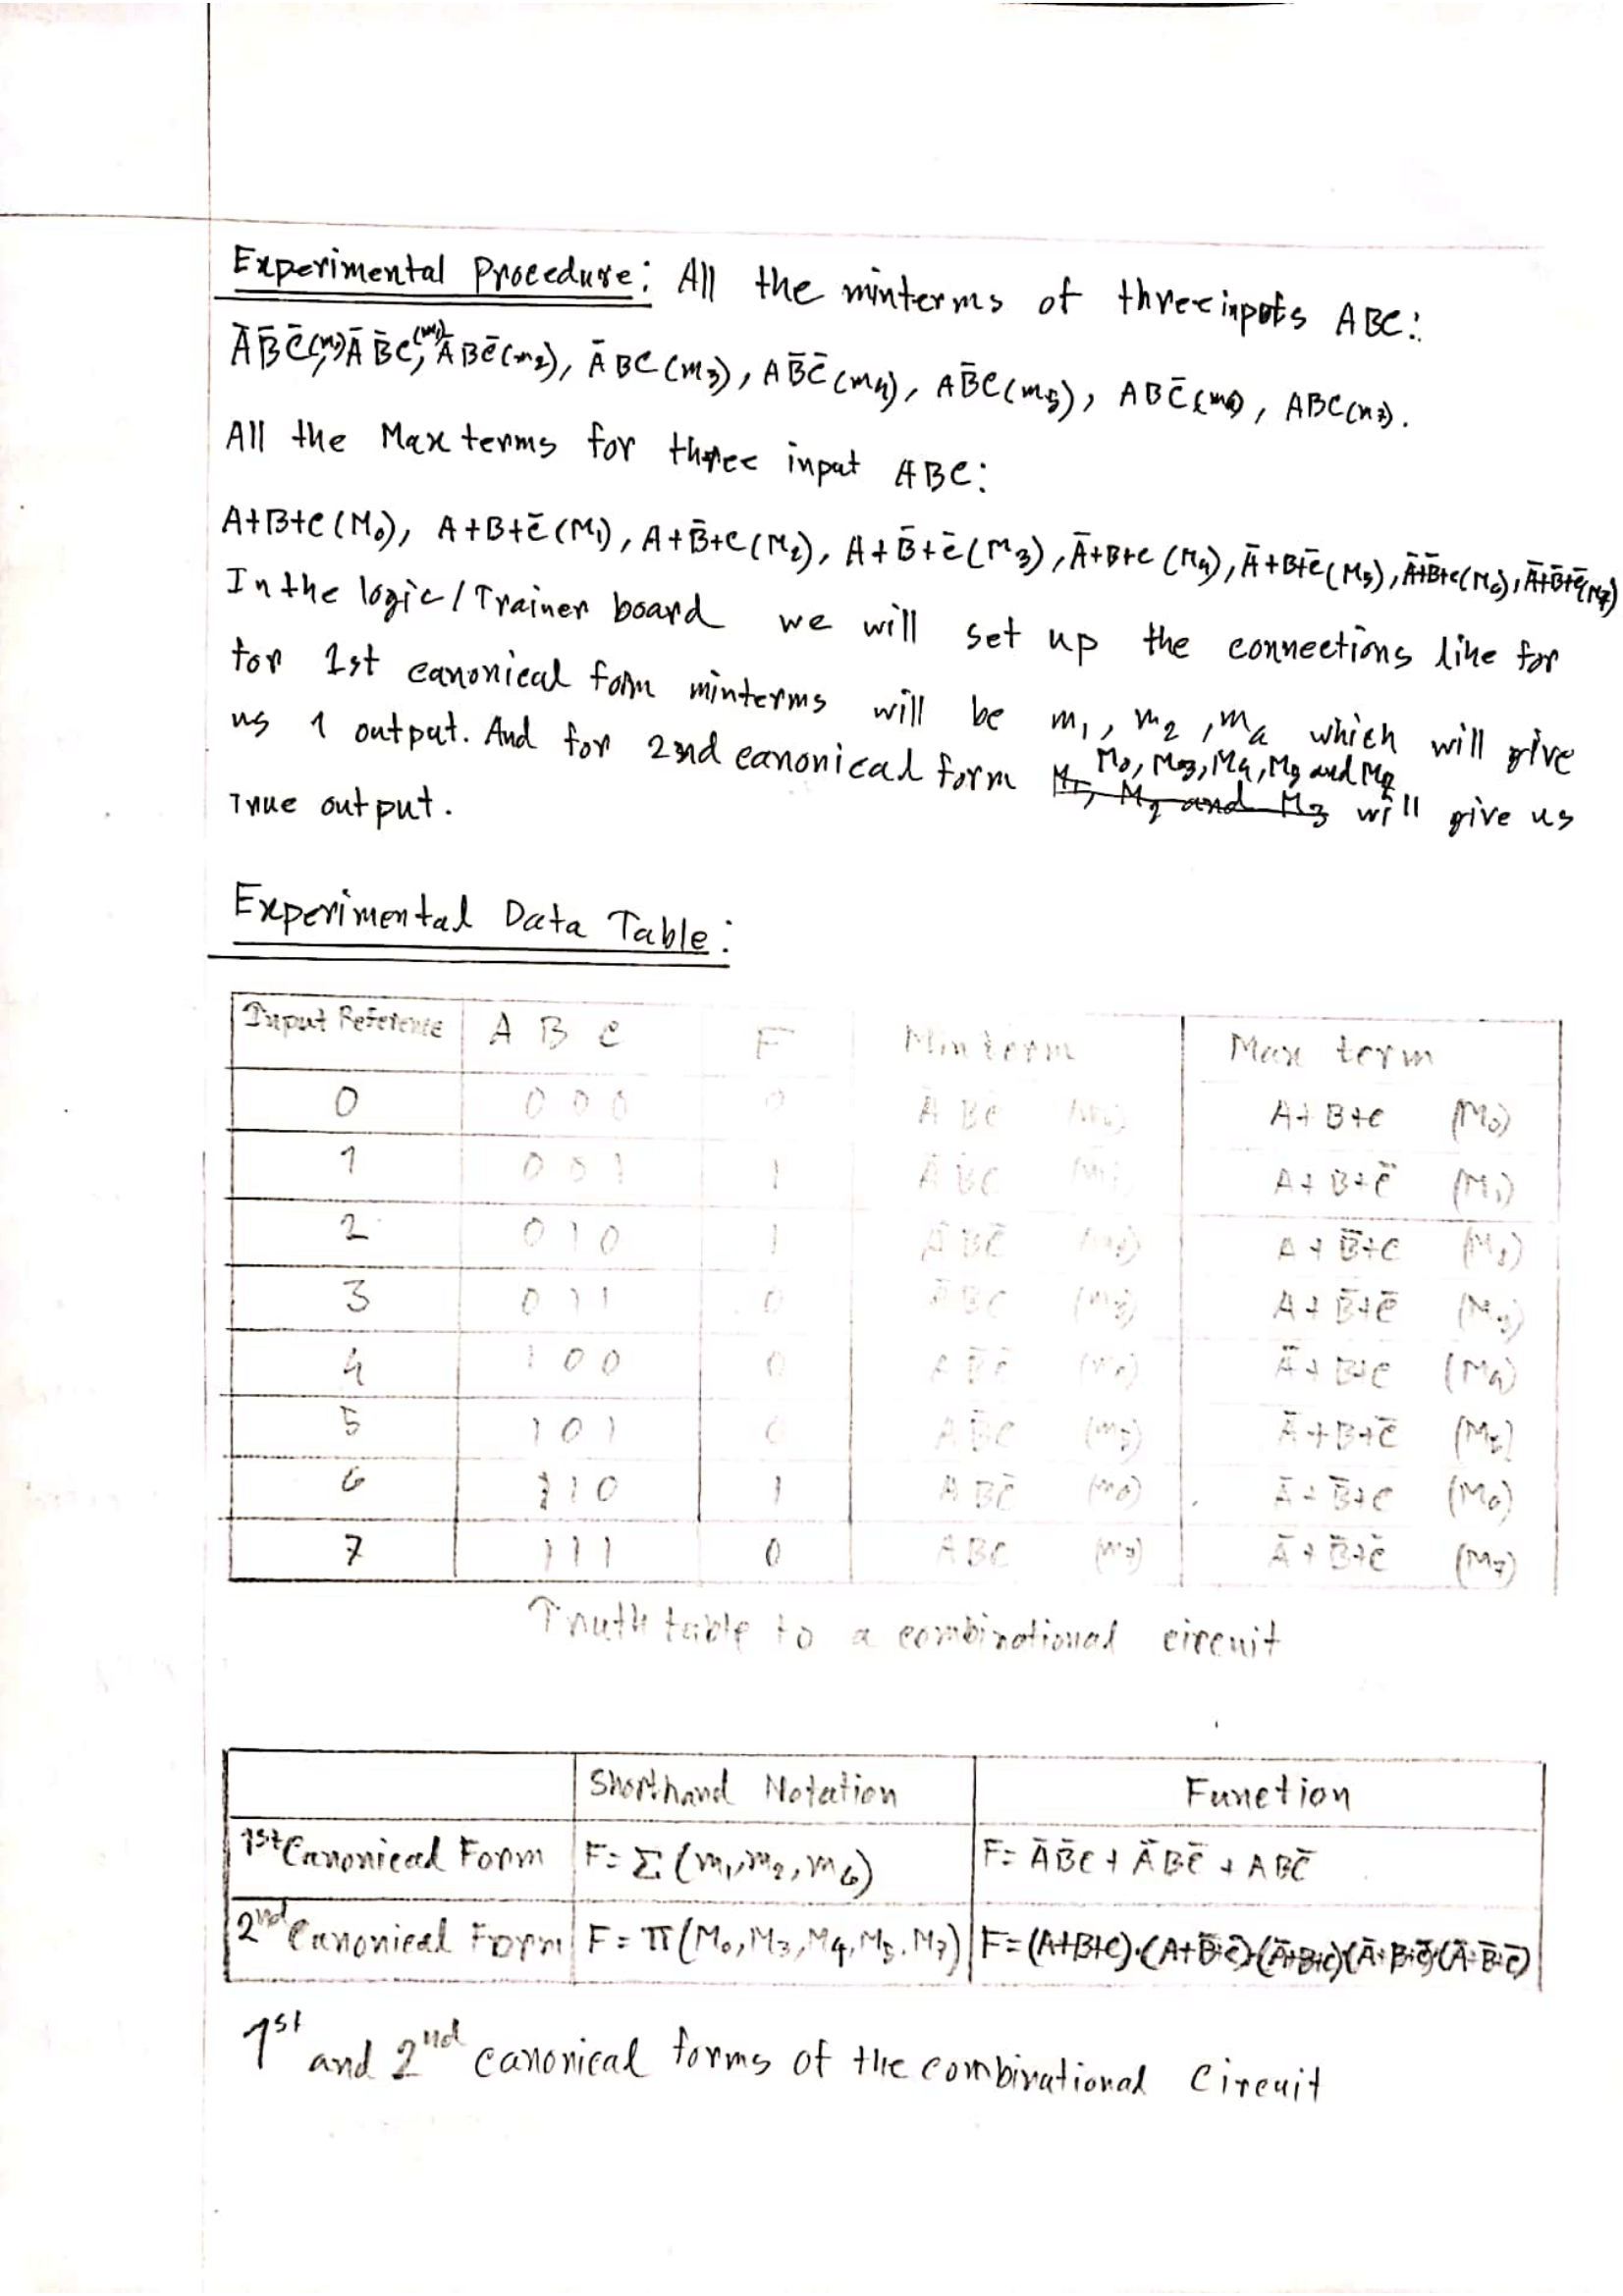 Experimental Procedure: All the minterms of three inputs ABC:
ĀB̄C̄(m₀), ĀB̄C(m₁), ĀBC̄(m₂), ĀBC(m₃), AB̄C̄(m₄), AB̄C(m₅), ABC̄(m₆), ABC(m₇).
All the Maxterms for three input ABC:
A+B+C(M₀), A+B+C̄(M₁), A+B̄+C(M₂), A+B̄+C̄(M₃), Ā+B+C(M₄), Ā+B+C̄(M₅), Ā+B̄+C(M₆), Ā+B̄+C̄(M₇)
In the logic/Trainer board we will set up the connections like for
for 1st canonical form minterms will be m₁, m₂, which will give
us 1 output. And for 2nd canonical form M₀, M₃, M₄, M₅ and M₇ will give us
True output.
Experimental Data Table:
Input Reference A B C F Minterm Max term
0 0 0 0 0 ĀB̄C̄ (m₀) A+B+C (M₀)
1 0 0 1 1 ĀB̄C (m₁) A+B+C̄ (M₁)
2 0 1 0 1 ĀBC̄ (m₂) A+B̄+C (M₂)
3 0 1 1 0 ĀBC (m₃) A+B̄+C̄ (M₃)
4 1 0 0 0 AB̄C̄ (m₄) Ā+B+C (M₄)
5 1 0 1 0 AB̄C (m₅) Ā+B+C̄ (M₅)
6 1 1 0 1 ABC̄ (m₆) Ā+B̄+C (M₆)
7 1 1 1 0 ABC (m₇) Ā+B̄+C̄ (M₇)
Truth table to a combinational circuit
Shorthand Notation Function
1st Canonical Form F=Σ(m₁,m₂,m₆) F=ĀB̄C+ĀBC̄+ABC̄
2nd Canonical Form F=π(M₀,M₃,M₄,M₅,M₇) F=(A+B+C)·(A+B̄+C̄)·(Ā+B+C)·(Ā+B+C̄)·(Ā+B̄+C̄)
1st and 2nd canonical forms of the combinational Circuit